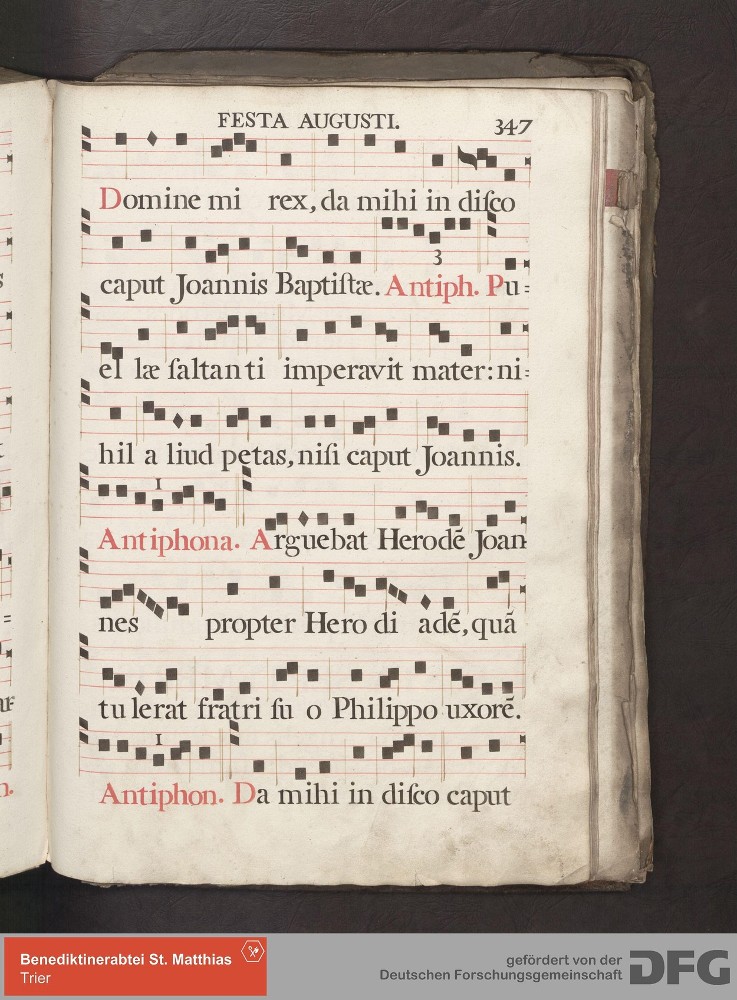 FESTA AUGUSTI. 347
Domine mi rex, da mihi in diſco
caput Joannis Baptiſtæ. Antiph. Pu=
3
el læ ſaltan ti imperavit mater: ni=
hil a liud petas, niſi caput Joannis.
1
Antiphona. Arguebat Herodē Joan
nes propter Hero di adē, quā
tu lerat fratri ſu o Philippo uxorē.
1
Antiphon. Da mihi in diſco caput
Benediktinerabtei St. Matthias
Trier
gefördert von der
Deutschen Forschungsgemeinschaft
DFG